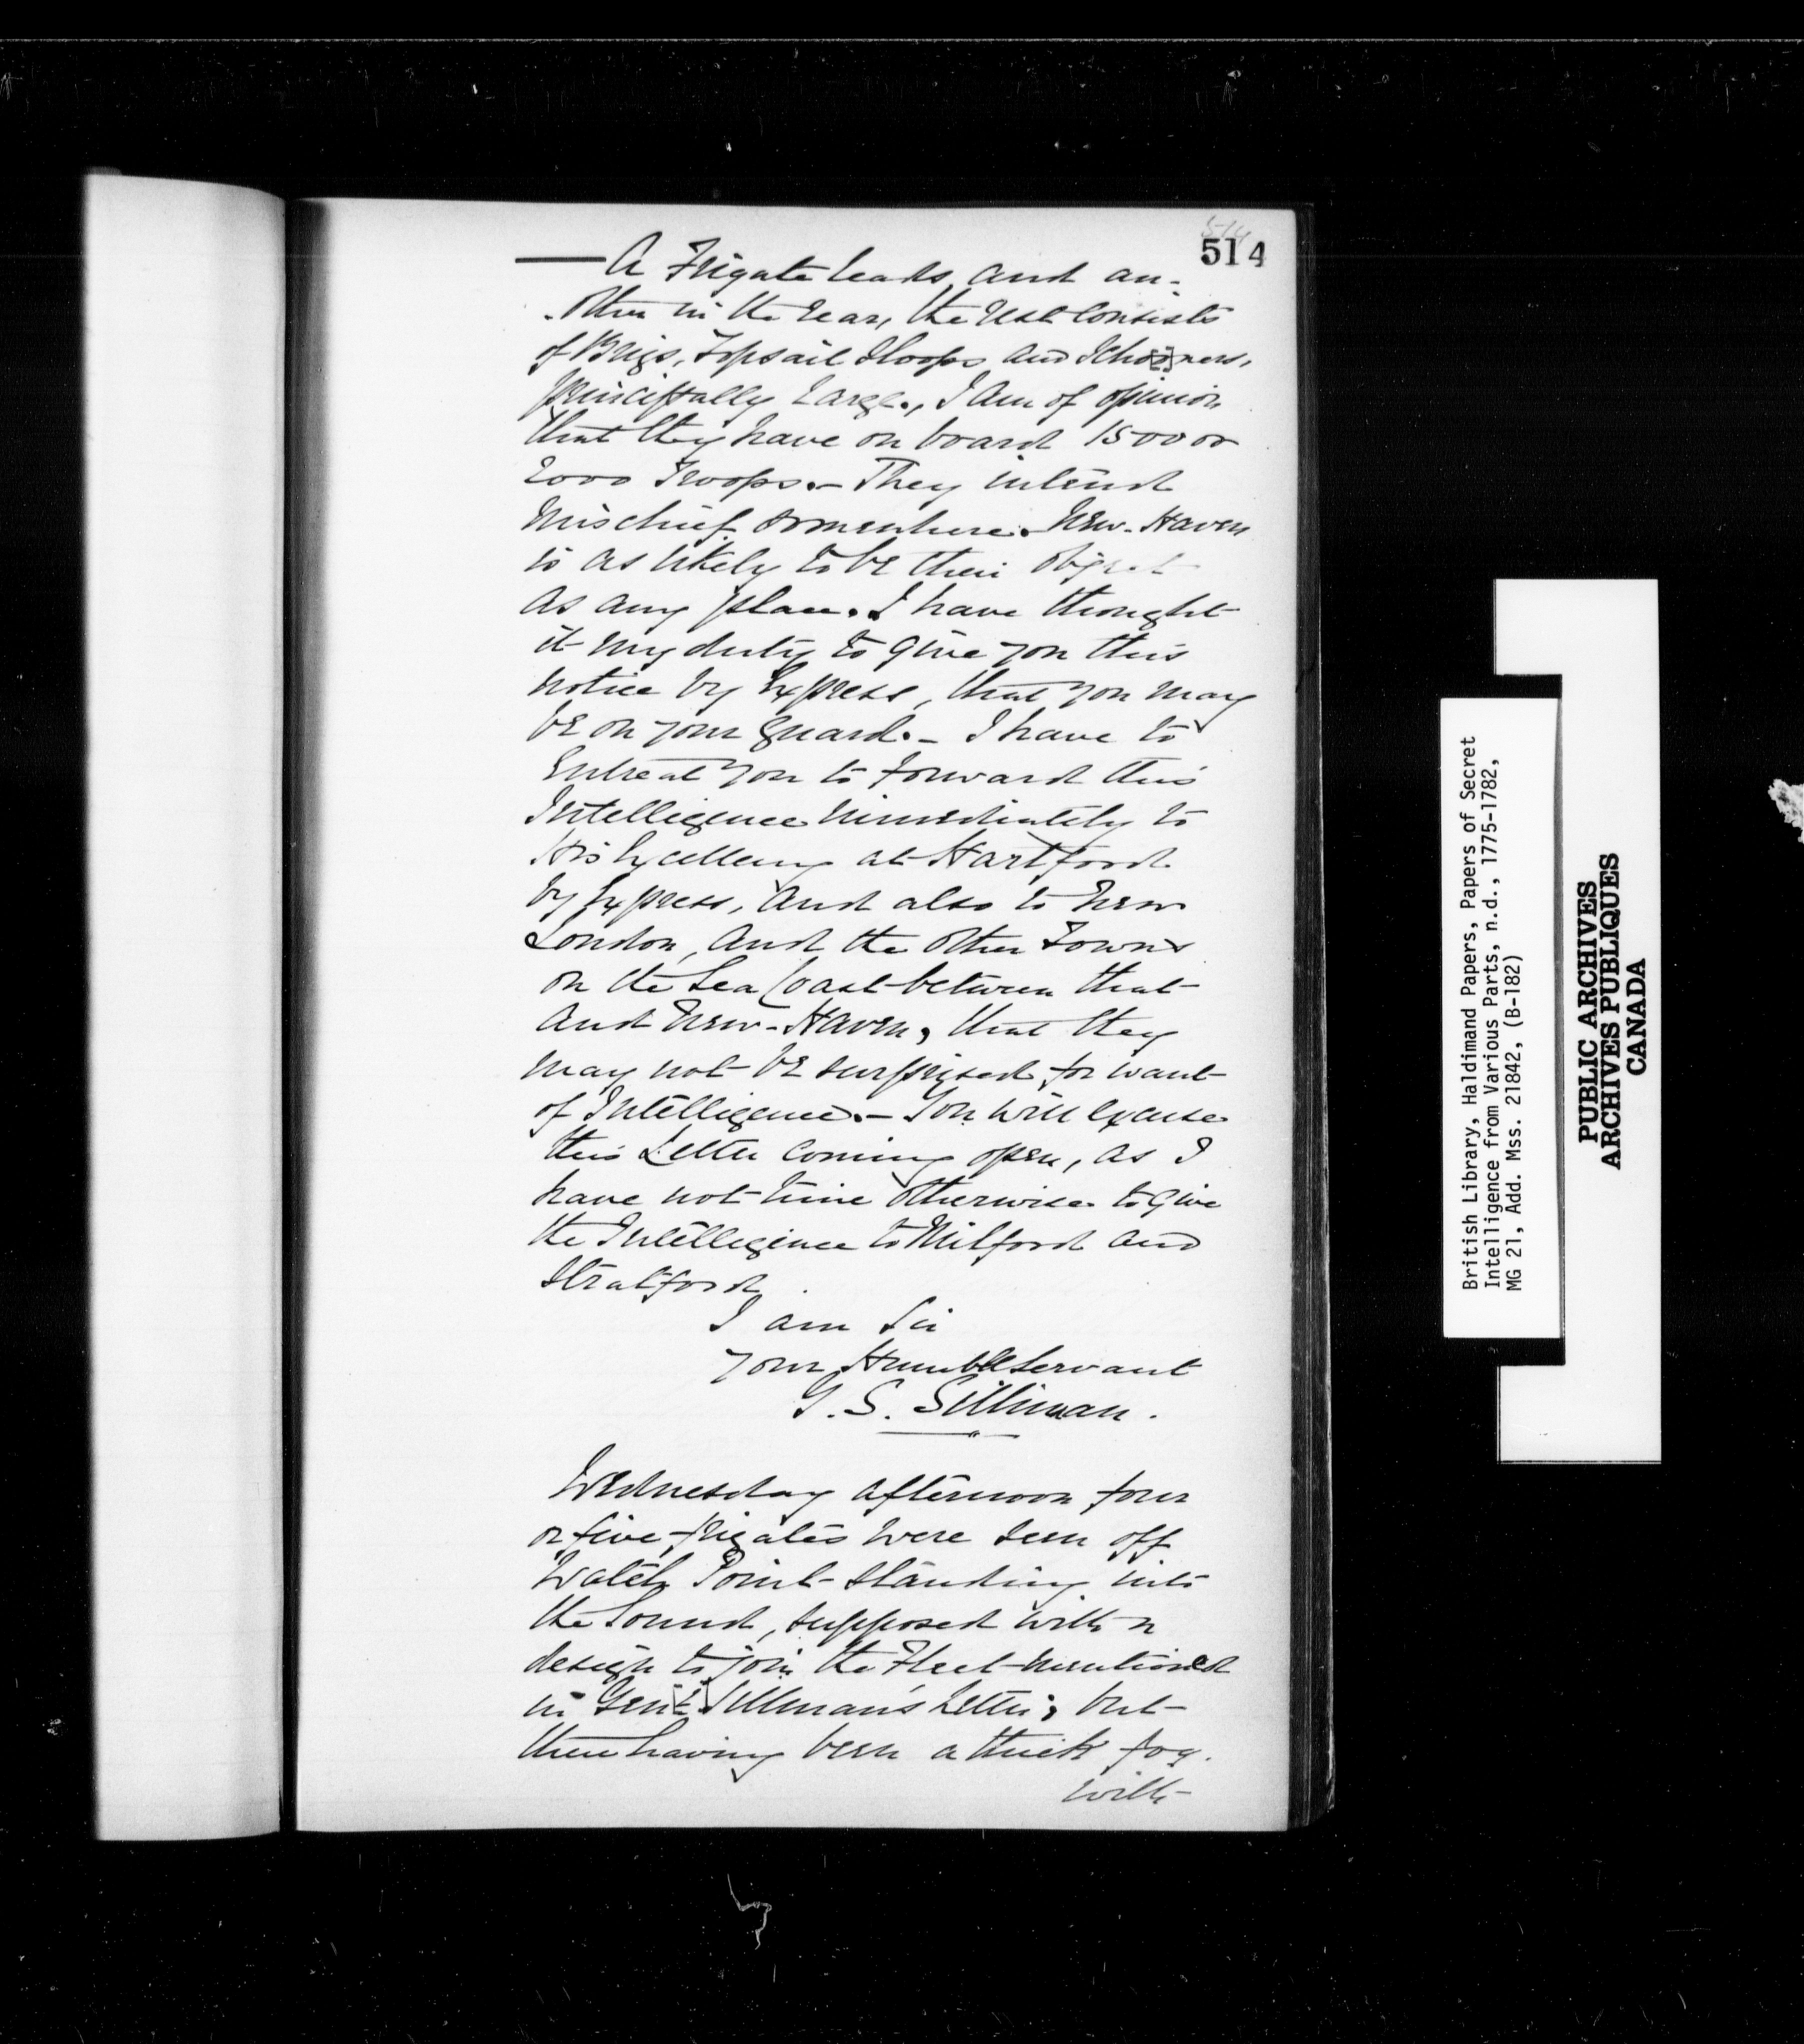 514
514
— A Frigate leads, and an-
-other in the rear, the rest Consists
of Brigs, Topsail Sloops and Scho[o]ners,
principally Large., I am of opinion
that they have on board 1500 or
2000 Troops.— They intend
Mischief somewhere. New-Haven
is as likely to be their Object
as any place. I have thought
it my duty to give you this
notice by Express, that you may
be on your guard.— I have to
Entreat you to forward this
Intelligence immediately to
His Excellency at Hartford
by Express, and also to New
London, and the other Towns
on the Sea Coast between that
and New-Haven, that they
may not be surprised for want
of Intelligence.— You will excuse
this Letter coming open, as I
have not time otherwise to give
the Intelligence to Milford and
Stratford.
I am Sir
your Humble Servant
G. S. Silliman.
Wednesday afternoon four
or five frigates were seen off
Watch Point standing into
the Sound, supposed with a
design to join the Fleet mentioned
in Gen[l] Silliman's Letter; but
there having been a thick fog.
with
British Library, Haldimand Papers, Papers of Secret
Intelligence from Various Parts, n.d., 1775-1782,
MG 21, Add. Mss. 21842, (B-182)
PUBLIC ARCHIVES
ARCHIVES PUBLIQUES
CANADA